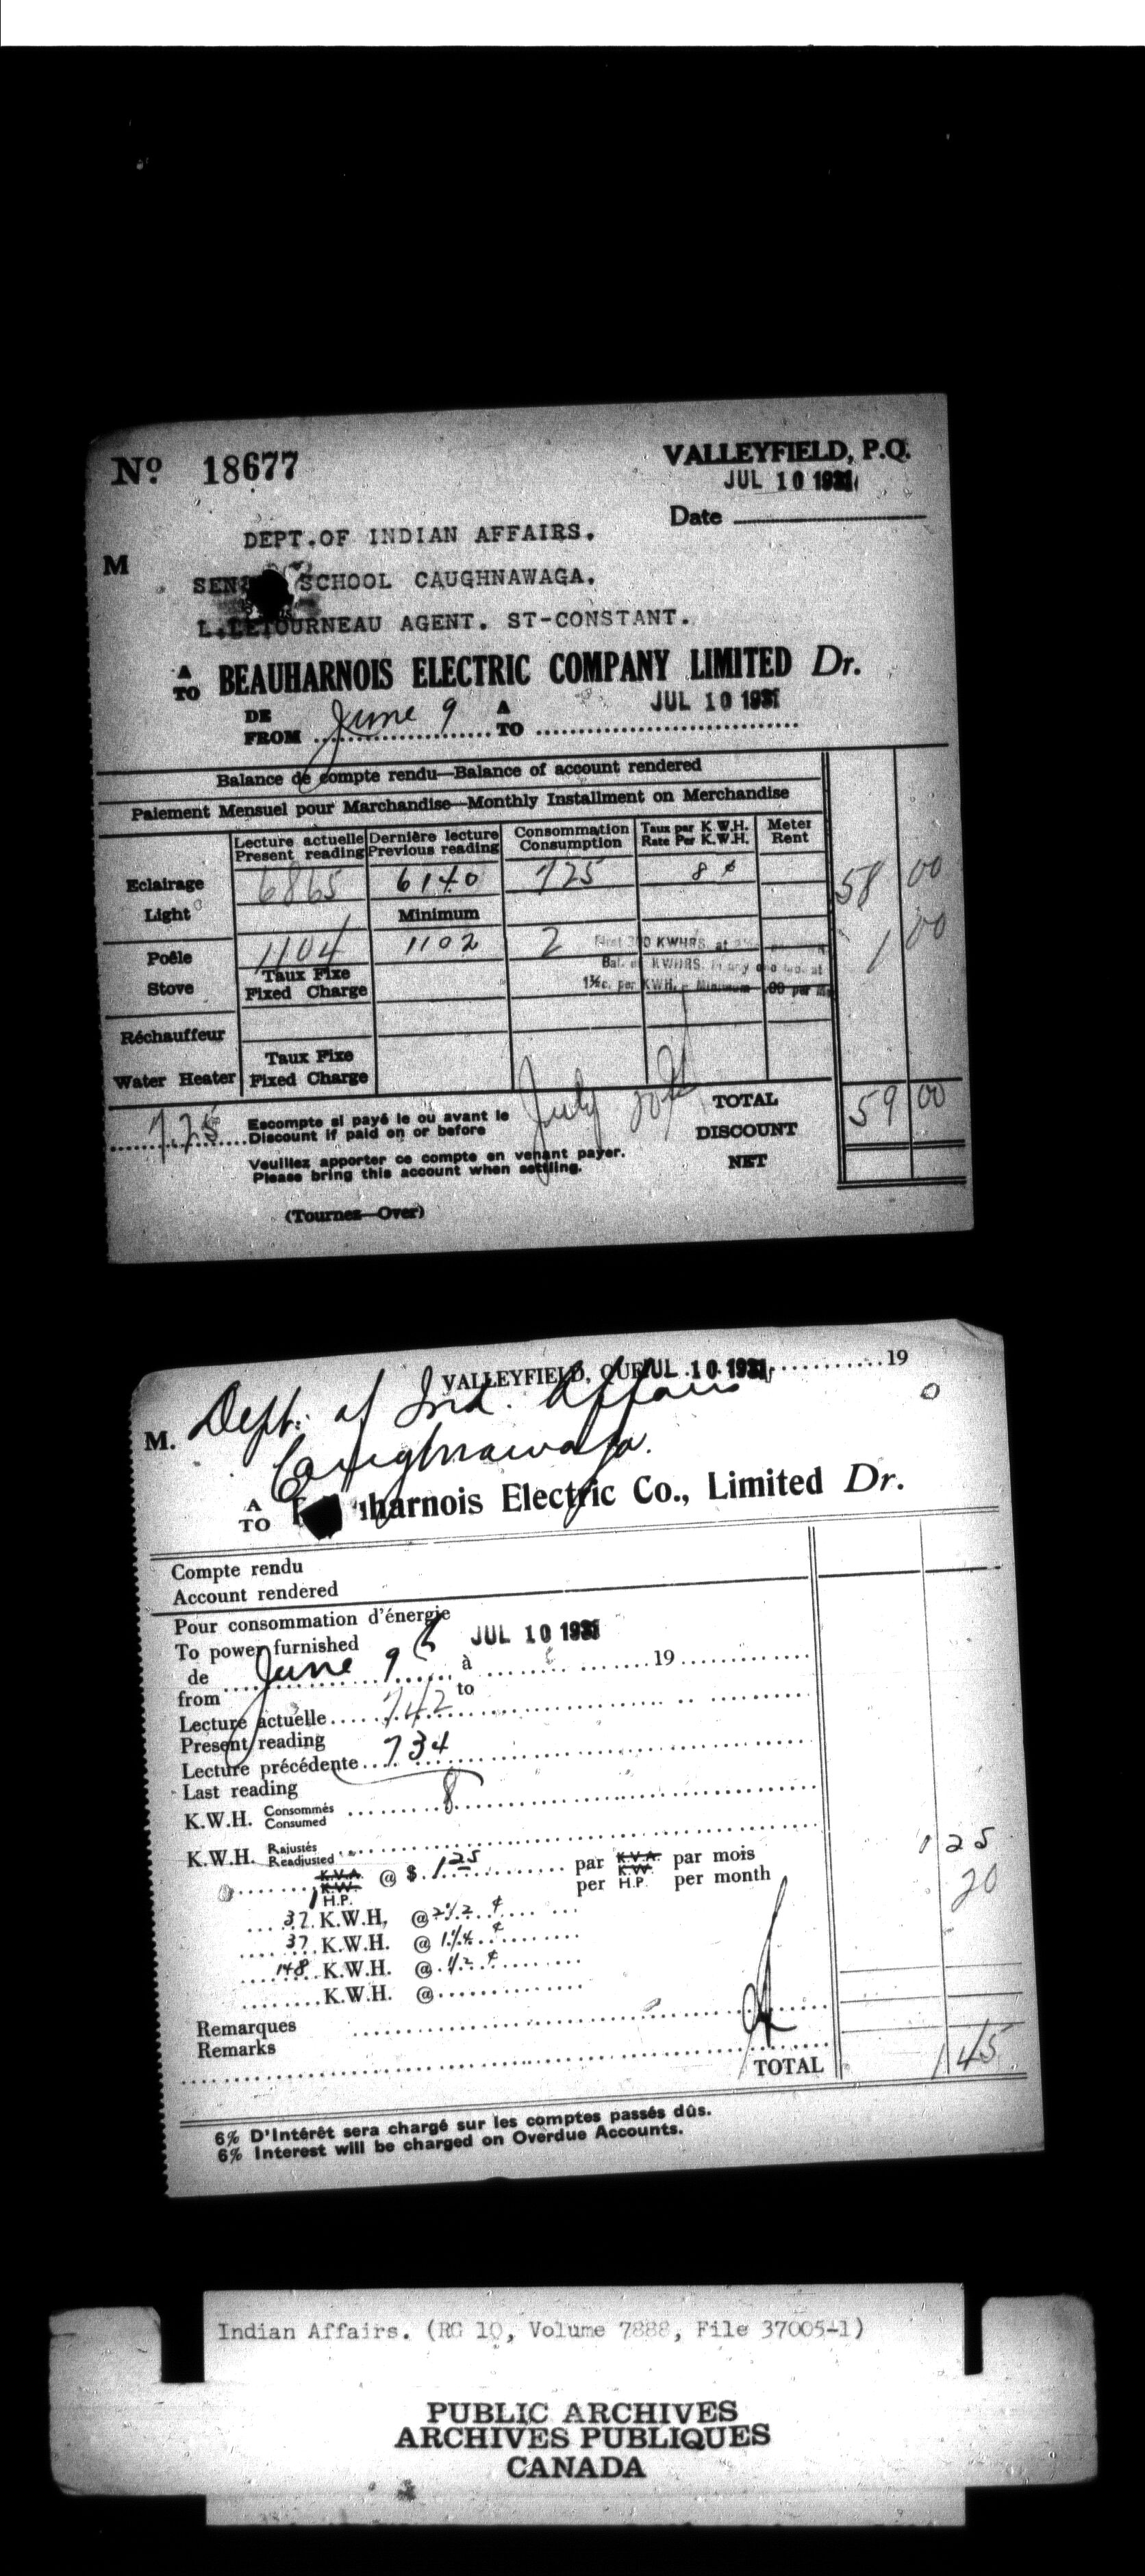 No 18677
VALLEYFIELD, P.Q.
JUL 10 1931
Date
DEPT.OF INDIAN AFFAIRS.
M
SCHOOL CAUGHNAWAGA.
L.LETOURNEAU AGENT. ST-CONSTANT.
A TO BEAUHARNOIS ELECTRIC COMPANY LIMITED Dr.
DE FROM June 9 A TO JUL 10 1931
Balance de compte rendu—Balance of account rendered
Paiement Mensuel pour Marchandise—Monthly Installment on Merchandise
Lecture actuelle Dernière lecture Consommation Taux par K.W.H. Meter
Present reading Previous reading Consumption Rate Per K.W.H. Rent
Eclairage 6865 6140 725 8 ¢ 58 00
Light Minimum
Poêle 1104 1102 2 First KWHRS. at 1 00
Taux Fixe Bal. of KWHRS. in any one mo. at
Stove Fixed Charge 1½c. per KWH. - Minimum .00 per
Réchauffeur
Taux Fixe
Water Heater Fixed Charge
TOTAL 59 00
7.25 Escompte si payé le ou avant le July 20th
Discount if paid on or before DISCOUNT
Veuillez apporter ce compte en venant payer.
Please bring this account when settling. NET
(Tournez—Over)
VALLEYFIELD, QUE JUL 10 1931 19
M. Dept. of Ind. Affairs
Caughnawaga.
A TO harnois Electric Co., Limited Dr.
Compte rendu
Account rendered
Pour consommation d'énergie
To power furnished
de June 9 à JUL 10 1931 19
from to
Lecture actuelle 742
Present reading
Lecture précédente 734
Last reading
K.W.H. Consommés Consumed 8
K.W.H. Rajustés Readjusted
1 K.V.A. K.W. H.P. @ $ 1 25 par per K.V.A. K.W. H.P. par mois per month 1 25
37 K.W.H, @ 2 1/2 ¢ 20
37 K.W.H. @ 1 1/4 ¢
148 K.W.H. @ 1/2 ¢
K.W.H. @
Remarques
Remarks
TOTAL 1 45
6% D'Intérêt sera chargé sur les comptes passés dûs.
6% Interest will be charged on Overdue Accounts.
Indian Affairs. (RG 10, Volume 7888, File 37005-1)
PUBLIC ARCHIVES
ARCHIVES PUBLIQUES
CANADA